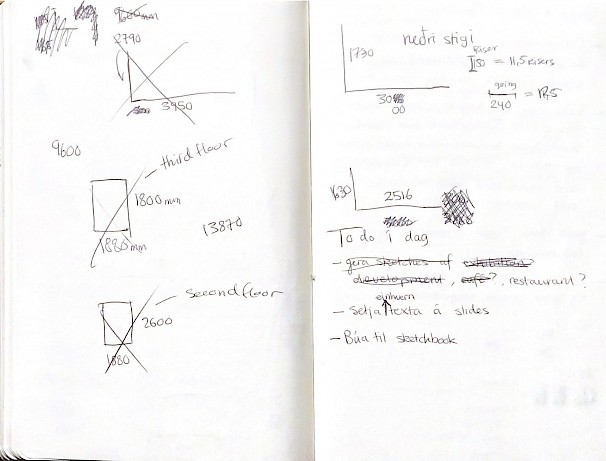 1600mm
2790
3950
9600
third floor
1800mm
1880mm
13870
second floor
2600
1880
neðri stigi
1730
Riser
150 = 11,5 risers
going
240
3000
1630
2516
To do í dag
- gera sketches af exhibition?
development, café?, restaurant?
einhvern
- Setja texta á slides
- Búa til sketchbook